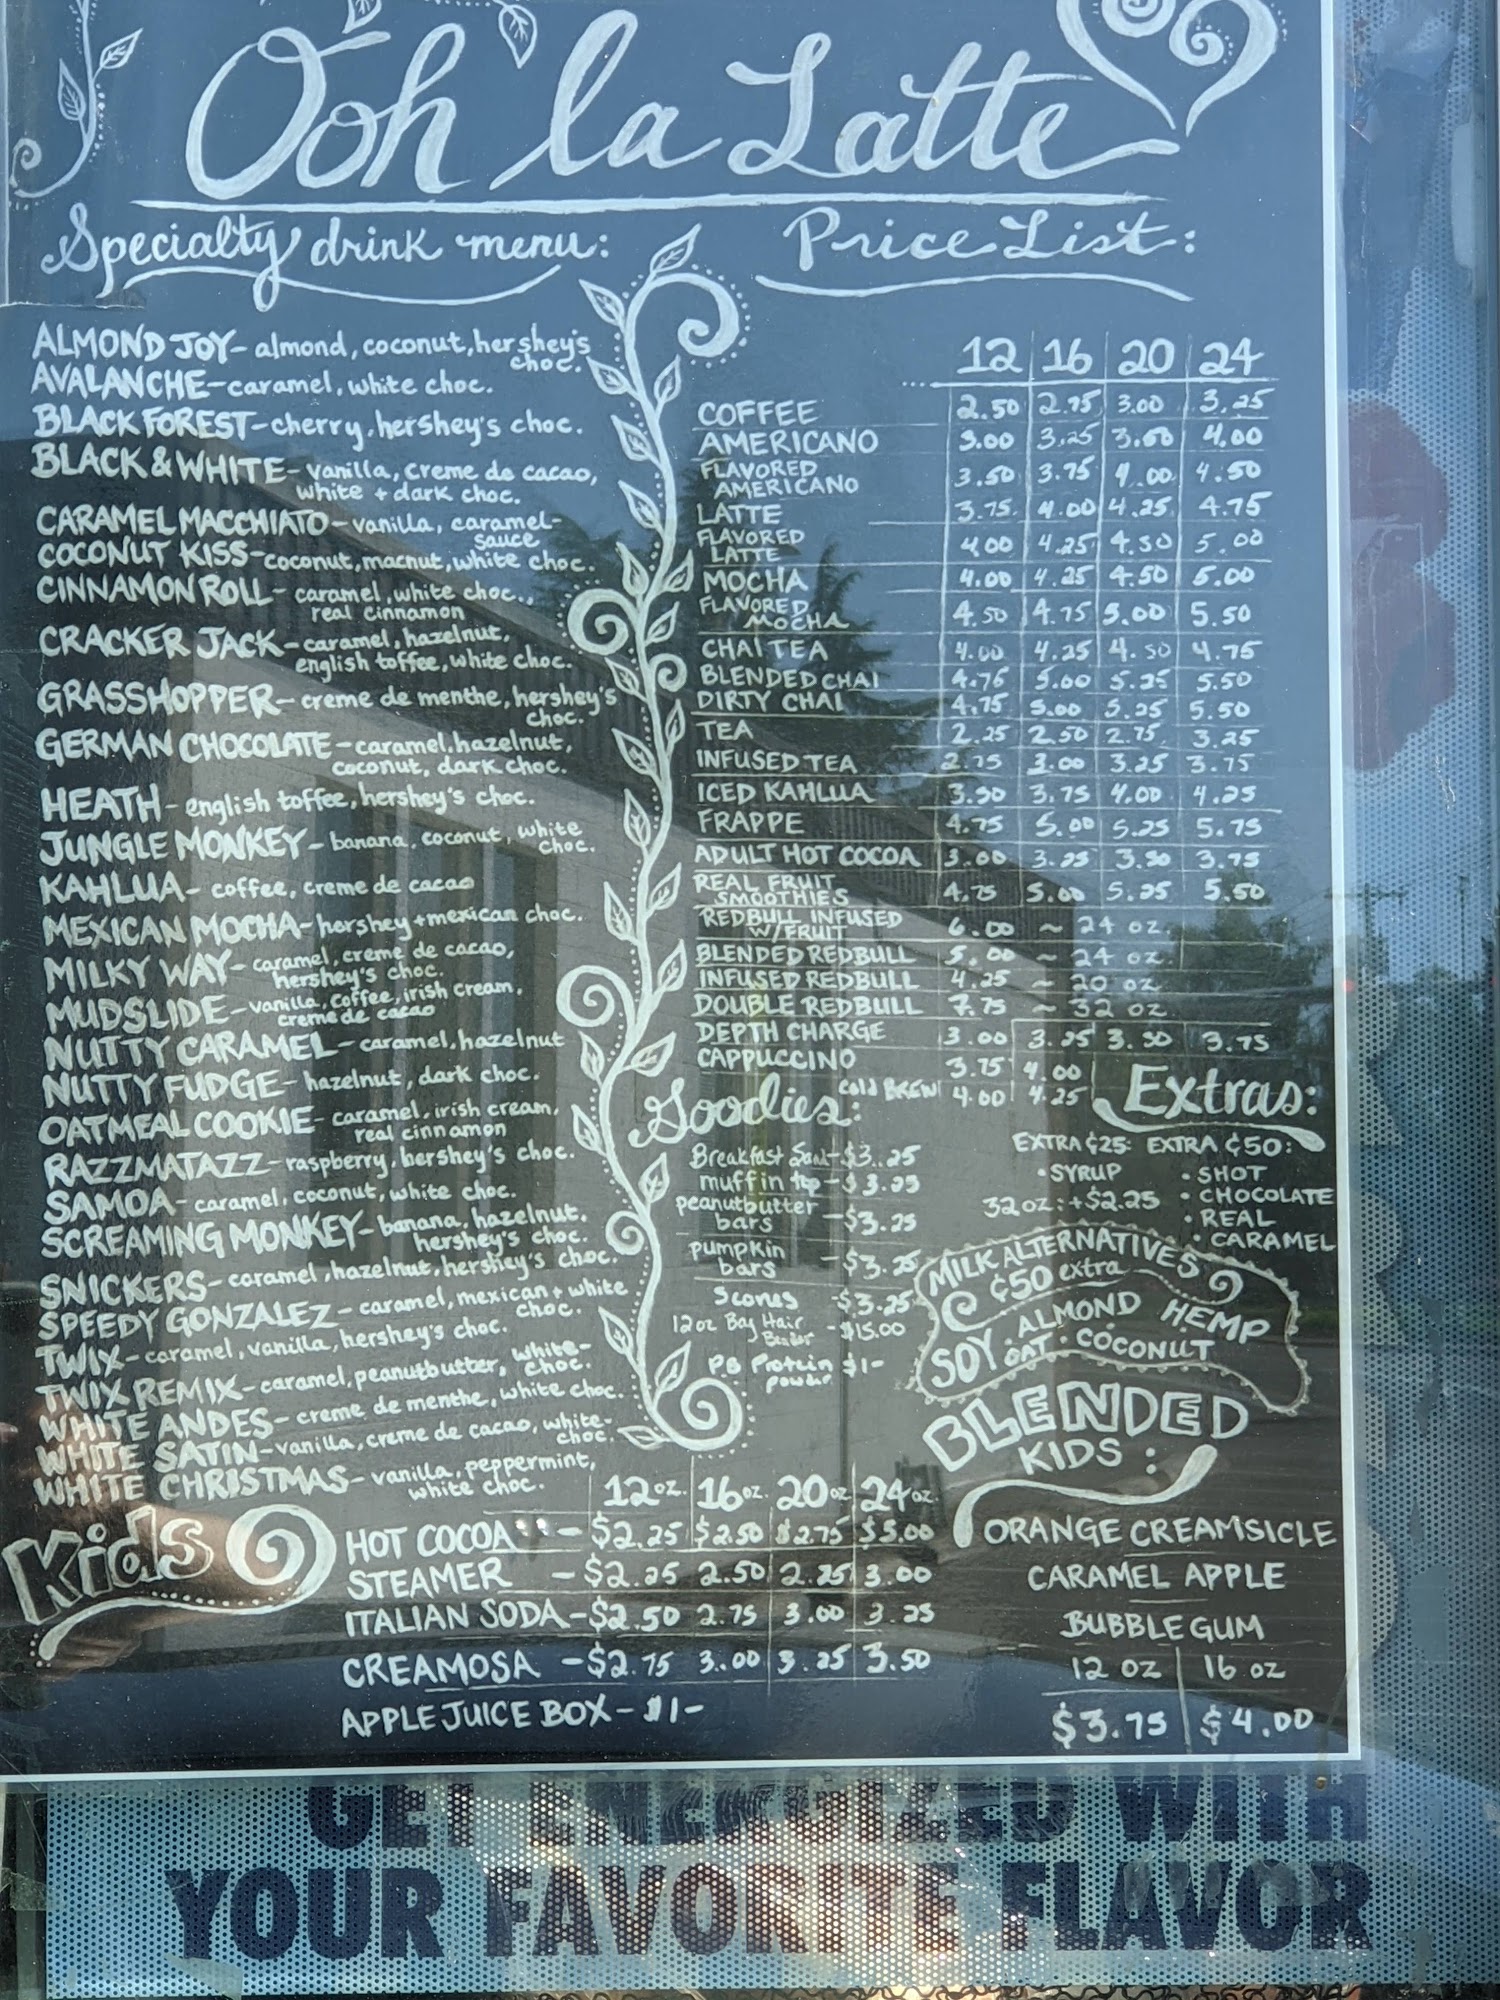 Ooh la Latte
Specialty drink menu:
ALMOND JOY- almond, coconut, hershey's
choc.
AVALANCHE- caramel, white choc.
BLACK FOREST- cherry, hershey's choc.
BLACK & WHITE- vanilla, creme de cacao,
white + dark choc.
CARAMEL MACCHIATO- vanilla, caramel-
sauce
COCONUT KISS- coconut, macnut, white choc.
CINNAMON ROLL- caramel, white choc.,
real cinnamon
CRACKER JACK- caramel, hazelnut,
english toffee, white choc.
GRASSHOPPER- creme de menthe, hershey's
choc.
GERMAN CHOCOLATE- caramel, hazelnut,
coconut, dark choc.
HEATH- english toffee, hershey's choc.
JUNGLE MONKEY- banana, coconut, white
choc.
KAHLUA- coffee, creme de cacao
MEXICAN MOCHA- hershey + mexican choc.
MILKY WAY- caramel, creme de cacao,
hershey's choc.
MUDSLIDE- vanilla, coffee, irish cream,
creme de cacao
NUTTY CARAMEL- caramel, hazelnut
NUTTY FUDGE- hazelnut, dark choc.
OATMEAL COOKIE- caramel, irish cream,
real cinnamon
RAZZMATAZZ- raspberry, hershey's choc.
SAMOA- caramel, coconut, white choc.
SCREAMING MONKEY- banana, hazelnut,
hershey's choc.
SNICKERS- caramel, hazelnut, hershey's choc.
SPEEDY GONZALEZ- caramel, mexican + white
choc.
TWIX- caramel, vanilla, hershey's choc.
TWIX REMIX- caramel, peanutbutter, white-
choc.
WHITE ANDES- creme de menthe, white choc.
WHITE SATIN- vanilla, creme de cacao, white-
choc.
WHITE CHRISTMAS- vanilla, peppermint,
white choc.
Price List:
12 16 20 24
COFFEE 2.50 2.75 3.00 3.25
AMERICANO 3.00 3.25 3.50 4.00
FLAVORED
AMERICANO 3.50 3.75 4.00 4.50
LATTE 3.75 4.00 4.25 4.75
FLAVORED
LATTE 4.00 4.25 4.50 5.00
MOCHA 4.00 4.25 4.50 5.00
FLAVORED
MOCHA 4.50 4.75 5.00 5.50
CHAI TEA 4.00 4.25 4.50 4.75
BLENDED CHAI 4.75 5.00 5.25 5.50
DIRTY CHAI 4.75 5.00 5.25 5.50
TEA 2.25 2.50 2.75 3.25
INFUSED TEA 2.75 3.00 3.25 3.75
ICED KAHLUA 3.50 3.75 4.00 4.25
FRAPPE 4.75 5.00 5.25 5.75
ADULT HOT COCOA 3.00 3.25 3.50 3.75
REAL FRUIT
SMOOTHIES 4.75 5.00 5.25 5.50
REDBULL INFUSED
W/FRUIT 6.00 ~ 24 oz.
BLENDED REDBULL 5.00 ~ 24 oz.
INFUSED REDBULL 4.25 ~ 20 oz
DOUBLE REDBULL 7.75 ~ 32 oz
DEPTH CHARGE 3.00 3.25 3.50 3.75
CAPPUCCINO 3.75 4.00
COLD BREW 4.00 4.25
Goodies:
Breakfast Sand-$3.25
muffin top-$3.25
peanutbutter
bars -$3.25
pumpkin
bars -$3.25
Scones -$3.25
12oz Bay Hair
-$15.00
PB Protein $1-
powder
Extras:
EXTRA ¢25: EXTRA ¢50:
•SYRUP •SHOT
32oz:+$2.25 •CHOCOLATE
•REAL
•CARAMEL
MILK ALTERNATIVES
¢50 extra
SOY•ALMOND HEMP
OAT•COCONUT
BLENDED
KIDS:
ORANGE CREAMSICLE
CARAMEL APPLE
BUBBLEGUM
12 oz 16 oz
$3.75 $4.00
Kids
12oz. 16oz. 20oz 24oz.
HOT COCOA -$2.25 $2.50 $2.75 $3.00
STEAMER -$2.25 2.50 2.75 3.00
ITALIAN SODA-$2.50 2.75 3.00 3.25
CREAMOSA -$2.75 3.00 3.25 3.50
APPLE JUICE BOX- $1-
GET ENERGIZED WITH
YOUR FAVORITE FLAVOR